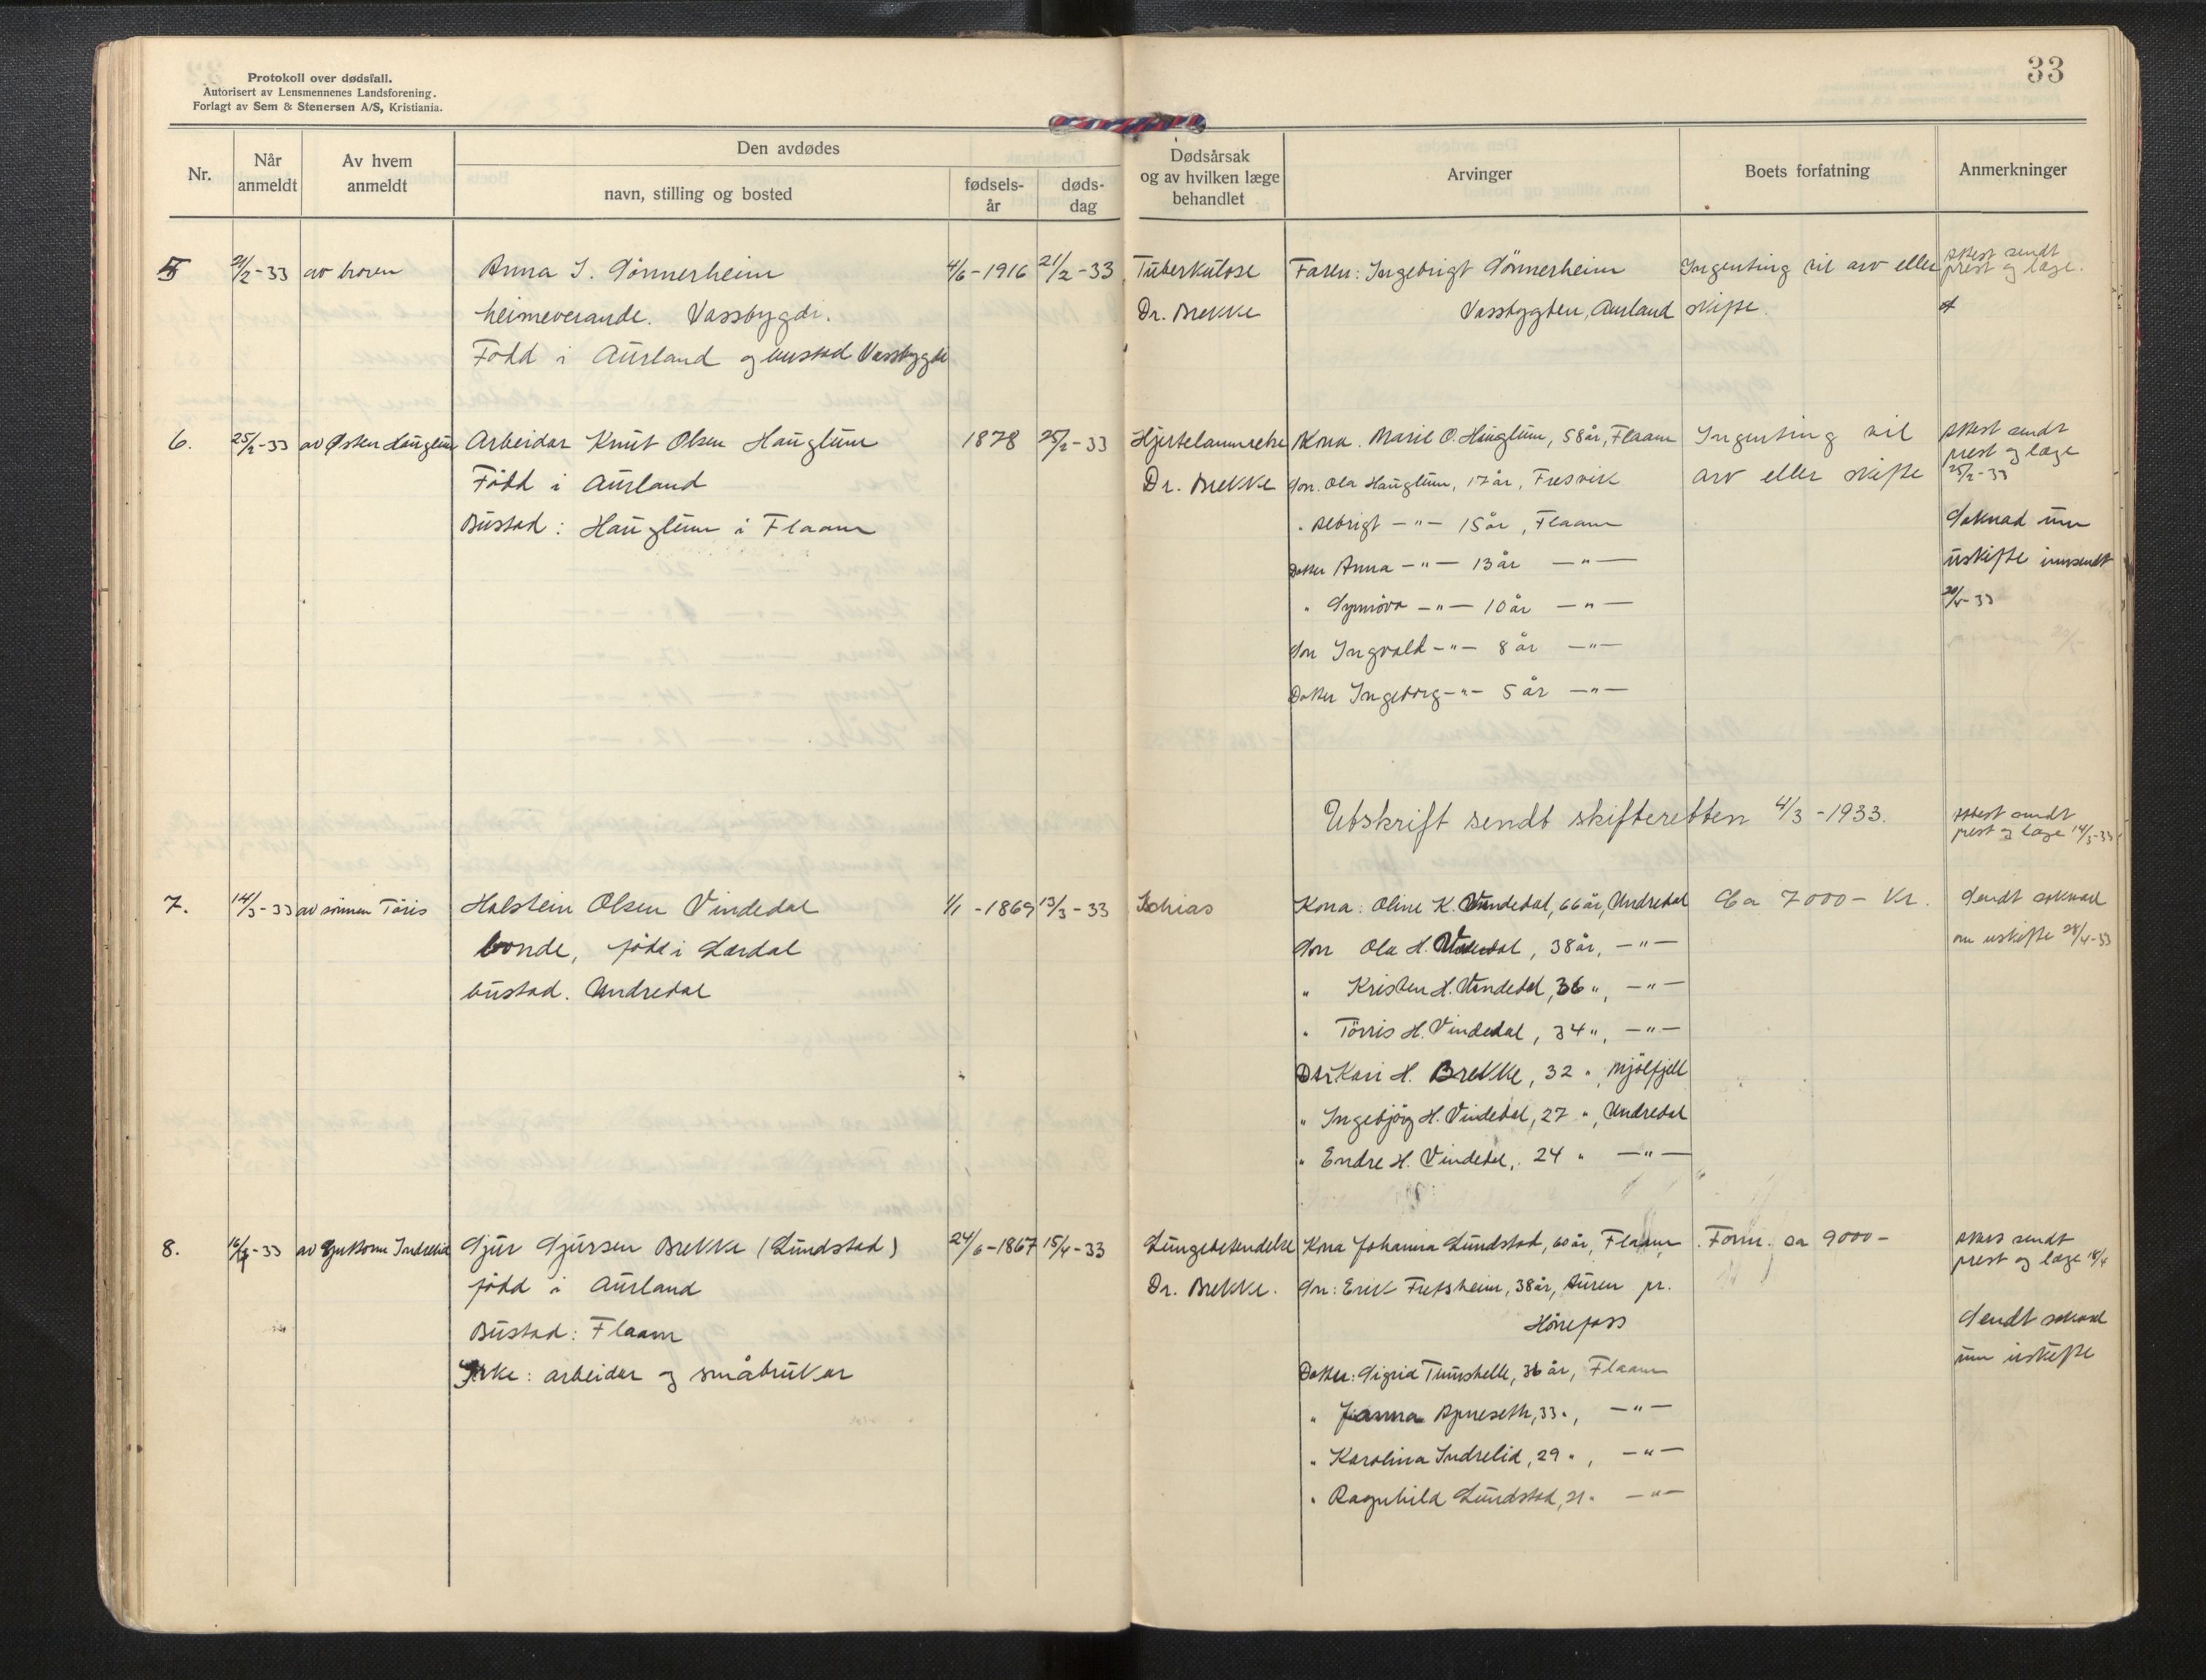 33
Protokoll over dødsfall.
Autorisert av Lensmennenes Landsforening.
Forlagt av Sem & Stenersen A/S, Kristiania.
Nr.
Når anmeldt
Av hvem anmeldt
Den avdødes
navn, stilling og bosted
fødsels-år
døds-dag
Dødsårsak og av hvilken læge behandlet
Arvinger
Boets forfatning
Anmerkninger
5 21/2-33 av broren Anna I. Sønnerheim 4/6-1916 21/2-33 Tuberkulose Faren: Ingebrigt Sønnerheim Ingenting til arv eller Attest sendt prest og læge.
heimeverande. Vassbygdi. Dr. Brekke Vassbygden, Aurland skifte.
Født i Aurland og bustad Vassbygdi
6. 25/2-33 av Østen Hauglum Arbeidar Knut Olsen Hauglum 1878 25/2-33 Hjertelammelse Kona. Marie O. Hauglum, 58 år, Flaam Ingenting til Attest sendt prest og læge
Född i Aurland Dr. Brekke Son. Ola Hauglum, 17 år, Fresvik arv eller skifte 25/2-33
Bustad: Hauglum i Flaam " Albrigt -"- 15 år, Flaam Söknad um
Dotter Anna -"- 13 år -"- uskifte innsendt
" Synnöva -"- 10 år -"-
Son Ingvald -"- 8 år -"-
Dotter Ingeborg -"- 5 år -"-
Utskrift sendt skifteretten 4/3-1933. Attest sendt
prest og læge 14/3-33
7. 14/3-33 av sönnen Töris Halstein Olsen Vindedal 1/1-1869 13/3-33 Ischias Kona: Oline K. Vindedal, 66 år, Undredal Ca 7000- Kr. Sendt söknad
bonde, född i Lærdal Son Ola H. Vindedal, 38 år, -"- om uskifte 28/4-33
bustad. Undredal " Kristen H. Vindedal, 36 ", -"-
" Törris H. Vindedal, 34 ", -"-
Dtr Kari H. Brekke, 32 ", Mjölfjell
" Ingebjörg H. Vindedal, 27 ", Undredal
" Endre H. Vindedal, 24 " -"-
8. 16/4-33 av Indrelid Gjur Gjursen Brekke (Lundstad) 24/6-1867 15/4-33 Lungebetendelse Kona Johanna Lundstad, 60 år, Flaam Form. ca 9000- Attest sendt
född i Aurland Dr. Brekke. Son: Erik Fretsheim, 38 år, pr. prest og læge 18/4
Bustad: Flaam Hönefoss Sendt söknad
Yrke: arbeidar og småbrukar Dotter: Sigrid Tunshelle, 36 år, Flaam um uskifte
" Janna 33 ", -"-
" Karolina Indrelid, 29 ", -"-
" Ragnhild Lundstad, 21 " -"-